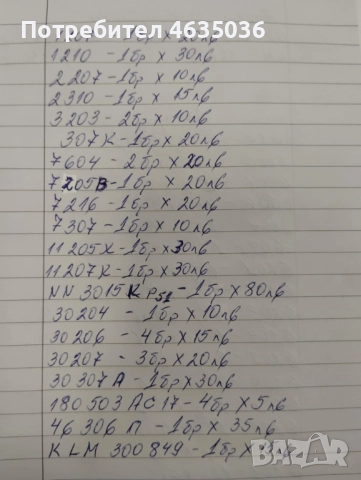 Потребител 4635036
1210 - 1бр х 30лв
2207 - 1бр х 10лв
2310 - 1бр х 15лв
3203 - 2бр х 10лв
307К - 1бр х 20лв
7604 - 2бр х 20лв
7205В - 1бр х 20лв
7216 - 1бр х 20лв
7307 - 1бр х 10лв
11205К - 1бр х 30лв
11207К - 1бр х 30лв
NN 3015К р51 - 1бр х 80лв
30204 - 1бр х 10лв
30206 - 4бр х 15лв
30207 - 3бр х 20лв
30307А - 1бр х 30лв
180503АС17 - 4бр х 5лв
46306П - 1бр х 35лв
KLM 300849 - 1бр х
bazar